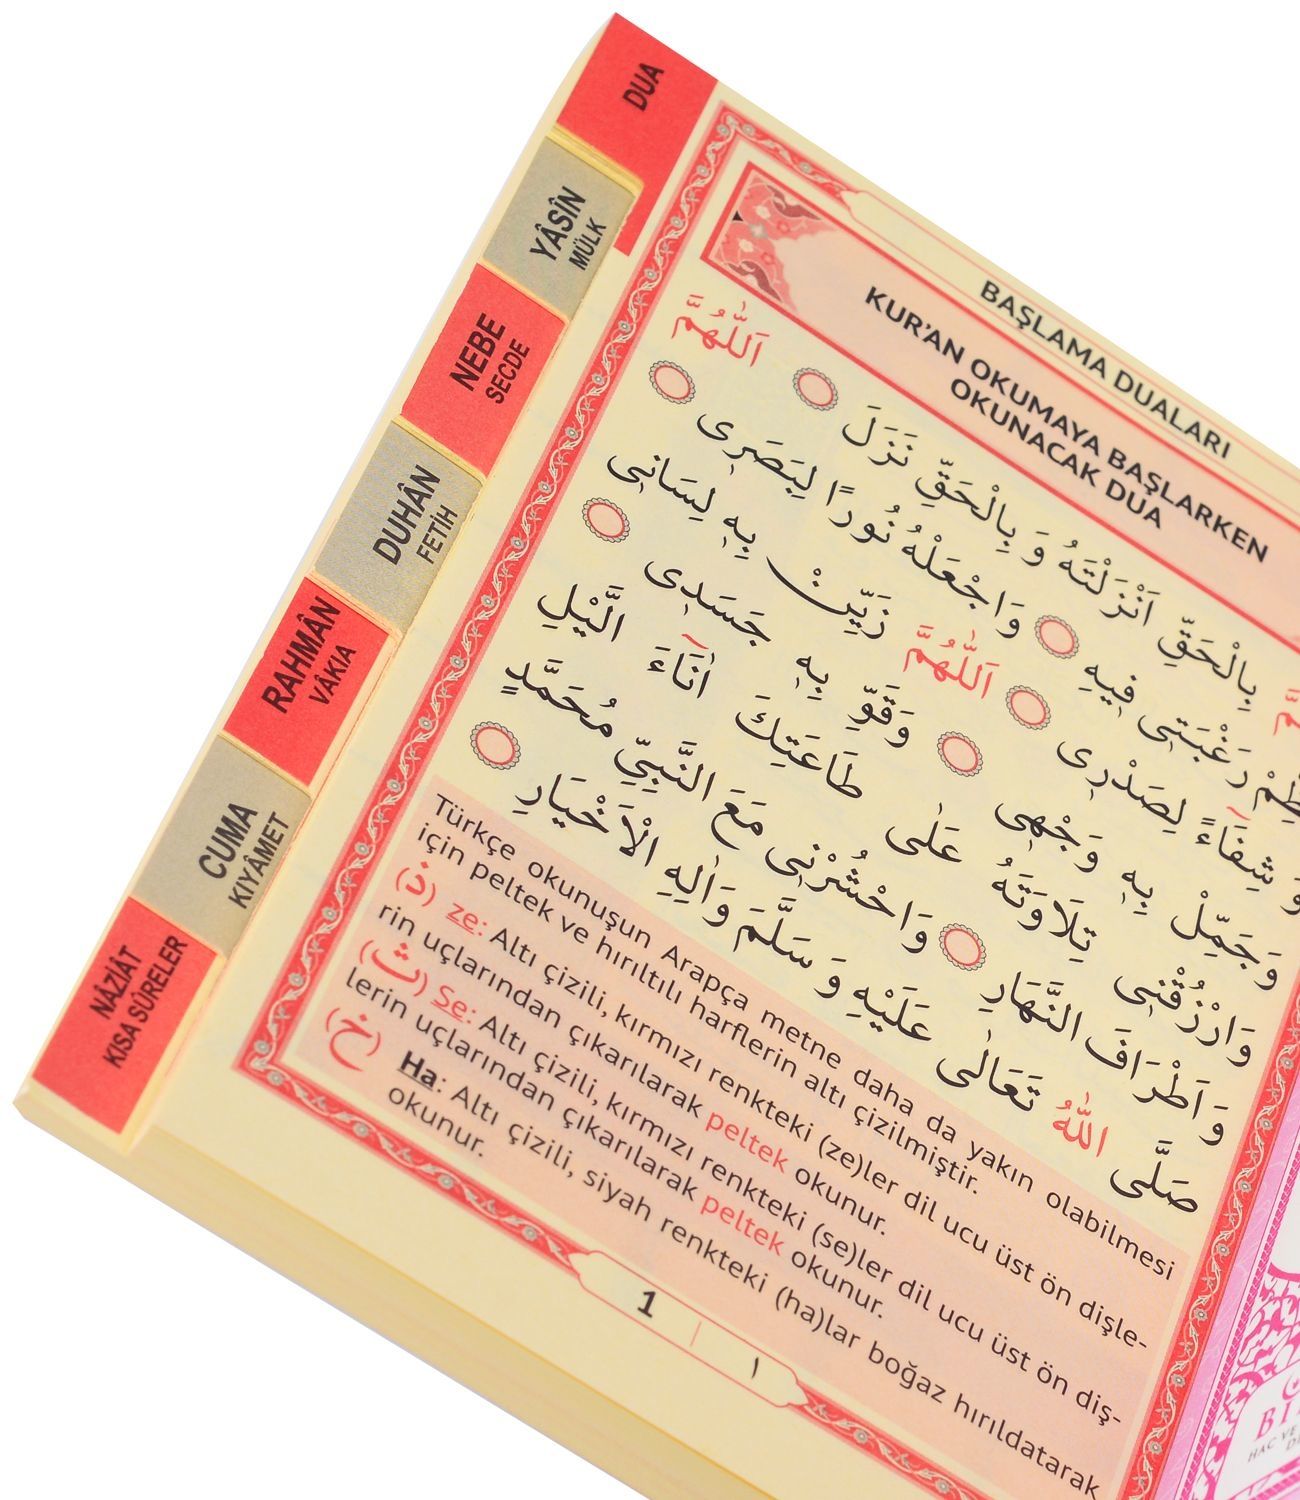 DUA
YÂSÎN
MÜLK
NEBE
SECDE
DUHÂN
FETİH
RAHMÂN
VÂKIA
CUMA
KIYÂMET
NÂZİÂT
KISA SÛRELER
BAŞLAMA DUALARI
KUR'AN OKUMAYA BAŞLARKEN
OKUNACAK DUA
بِالْحَقِّ اَنْزَلْتَهُ وَ بِالْحَقِّ نَزَلَ اَللّٰهُمَّ
رَغْبَتٖى فٖيهِ وَاجْعَلْهُ نُورًا لِبَصَرٖى
وَشِفَٓاءً لِصَدْرٖى اَللّٰهُمَّ زَيِّنْ بِهٖ لِسَانٖى
وَجَمِّلْ بِهٖ وَجْهٖى وَقَوِّ بِهٖ جَسَدٖى
وَارْزُقْنٖى تِلَاوَتَهُ عَلٰى طَاعَتِكَ اٰنَٓاءَ الَّيْلِ
وَاَطْرَافَ النَّهَارِ وَاحْشُرْنٖى مَعَ النَّبِيِّ مُحَمَّدٍ
صَلَّى اللّٰهُ تَعَالٰى عَلَيْهِ وَ سَلَّمَ وَاٰلِهِ الْاَخْيَارِ
Türkçe okunuşun Arapça metne daha da yakın olabilmesi
için peltek ve hırıltılı harflerin altı çizilmiştir.
(ذ) ze: Altı çizili, kırmızı renkteki (ze)ler dil ucu üst ön dişle-
rin uçlarından çıkarılarak peltek okunur.
(ث) Se: Altı çizili, kırmızı renkteki (se)ler dil ucu üst ön diş-
lerin uçlarından çıkarılarak peltek okunur.
(خ) Ha: Altı çizili, siyah renkteki (ha)lar boğaz hırıldatarak
okunur.
1 ١